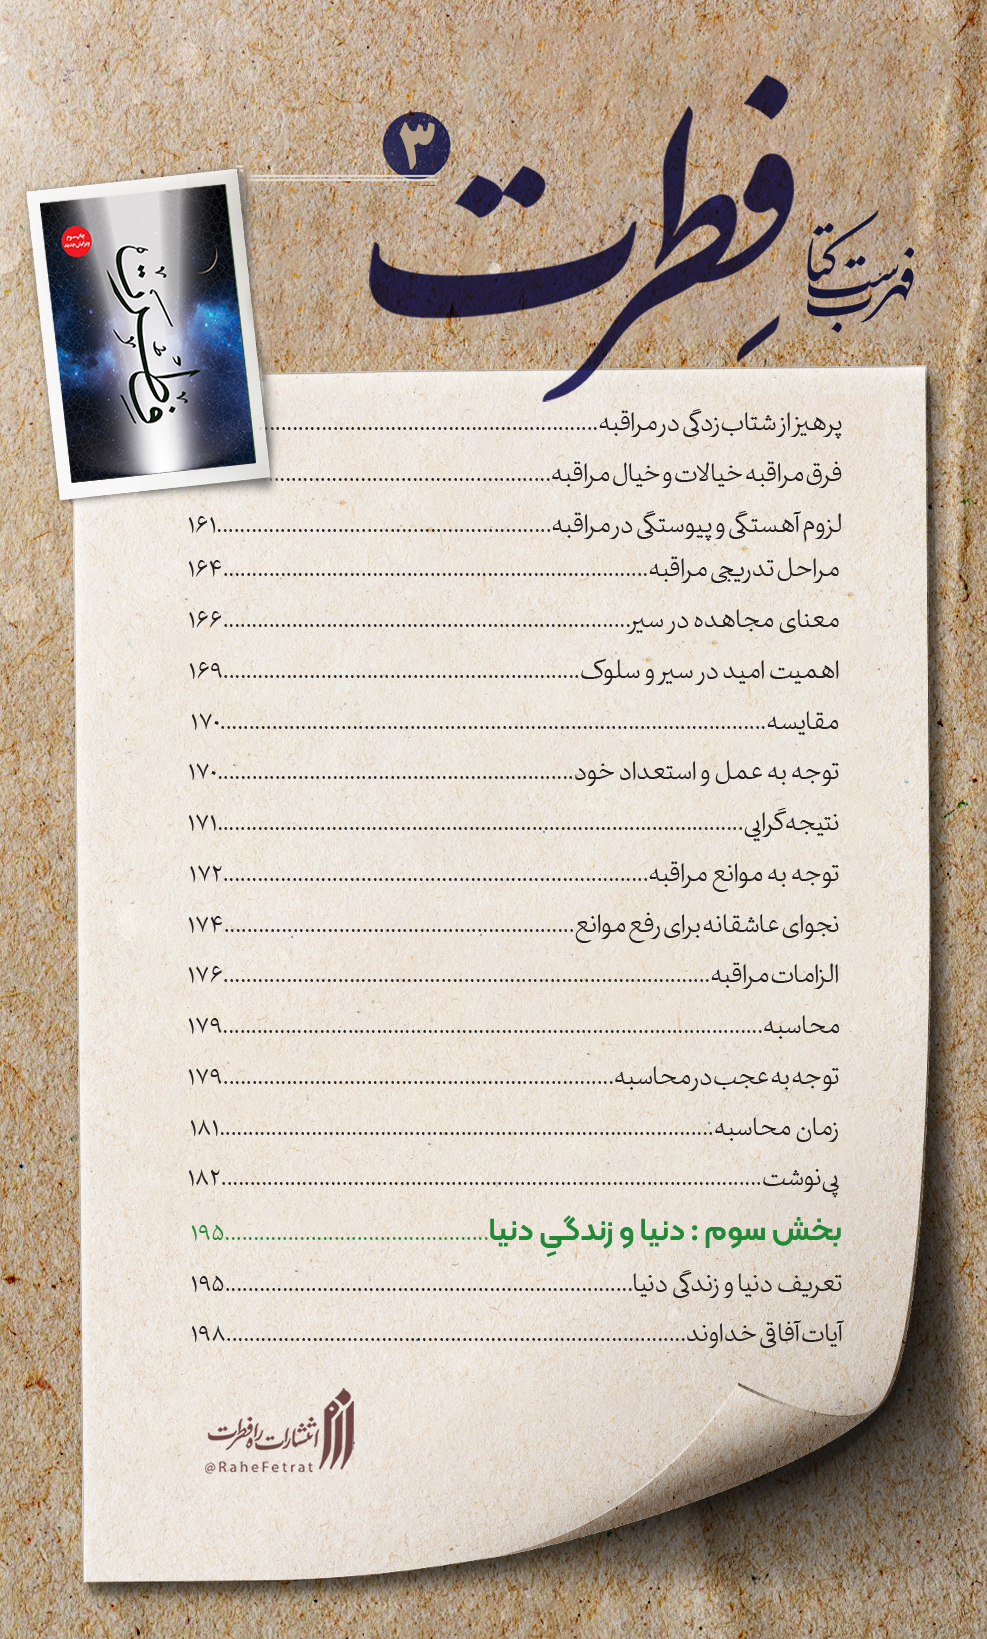 فهرست کتاب
فطرت
۳
چاپ سوم
ویرایش جدید
فطرت
پرهیز از شتاب‌زدگی در مراقبه......................................................
فرق مراقبه خیالات و خیال مراقبه......................................................
لزوم آهستگی و پیوستگی در مراقبه......................................................۱۶۱
مراحل تدریجی مراقبه......................................................۱۶۴
معنای مجاهده در سیر......................................................۱۶۶
اهمیت امید در سیر و سلوک......................................................۱۶۹
مقایسه......................................................۱۷۰
توجه به عمل و استعداد خود......................................................۱۷۰
نتیجه‌گرایی......................................................۱۷۱
توجه به موانع مراقبه......................................................۱۷۲
نجوای عاشقانه برای رفع موانع......................................................۱۷۴
الزامات مراقبه......................................................۱۷۶
محاسبه......................................................۱۷۹
توجه به عجب در محاسبه......................................................۱۷۹
زمان محاسبه:......................................................۱۸۱
پی‌نوشت......................................................۱۸۲
بخش سوم : دنیا و زندگیِ دنیا......................................................۱۹۵
تعریف دنیا و زندگی دنیا......................................................۱۹۵
آیات آفاقی خداوند......................................................۱۹۸
انتشارات راه فطرت
@RaheFetrat